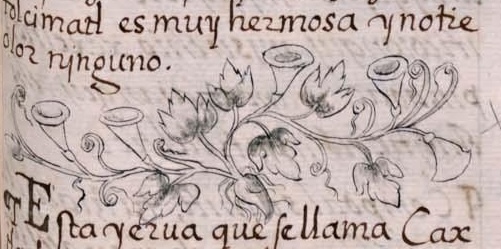 tolcimatl es muy hermosa y no tie
olor ninguno.
¶ Esta yerua que se llama Cax